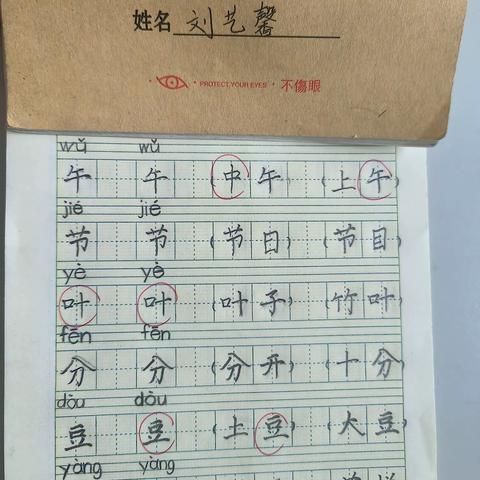 姓名 刘艺馨
PROTECT YOUR EYES · 不傷眼
wǔ wǔ
午 午 (中午) (上午)
jié jié
节 节 (节日) (节目)
yè yè
叶 叶 (叶子) (竹叶)
fēn fēn
分 分 (分开) (十分)
dòu dòu
豆 豆 (土豆) (大豆)
yàng yàng